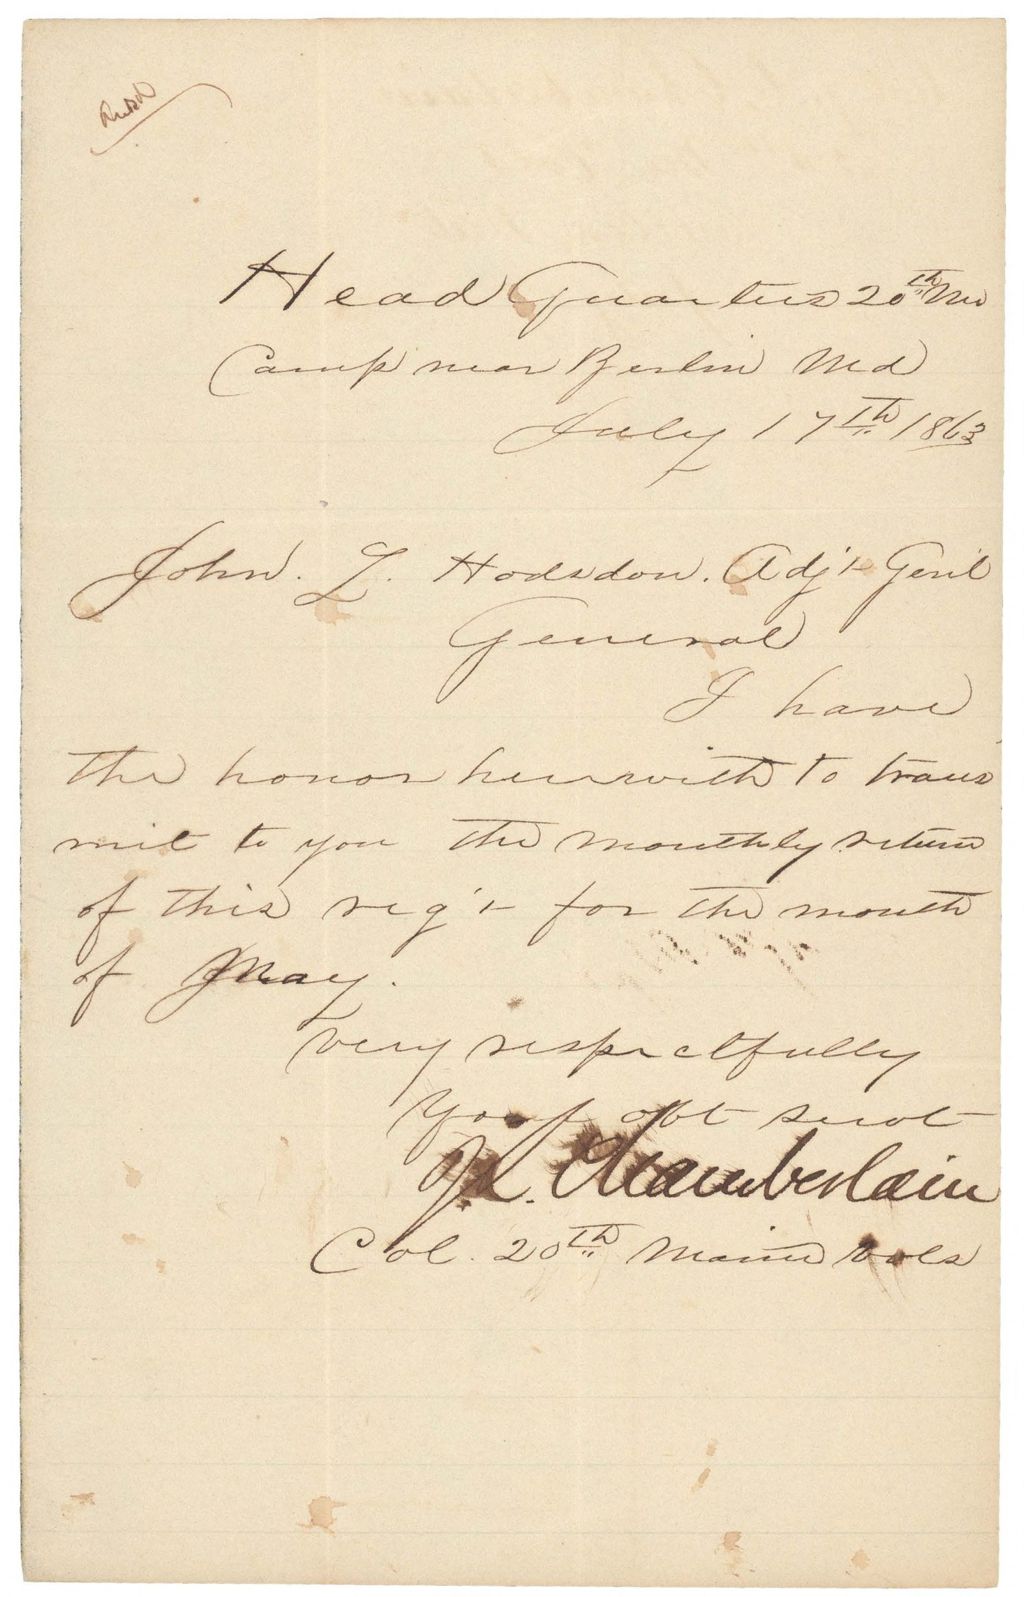 Head Quarters 20th Me
Camp near Berlin Md
July 17th 1863
John. L. Hodsdon. Adjt Genl
General
I have
the honor herewith to trans
mit to you the monthly return
of this reg't for the month
of May.
Very respectfully
Your obt servt
J. L. Chamberlain
Col. 20th Maine Vols